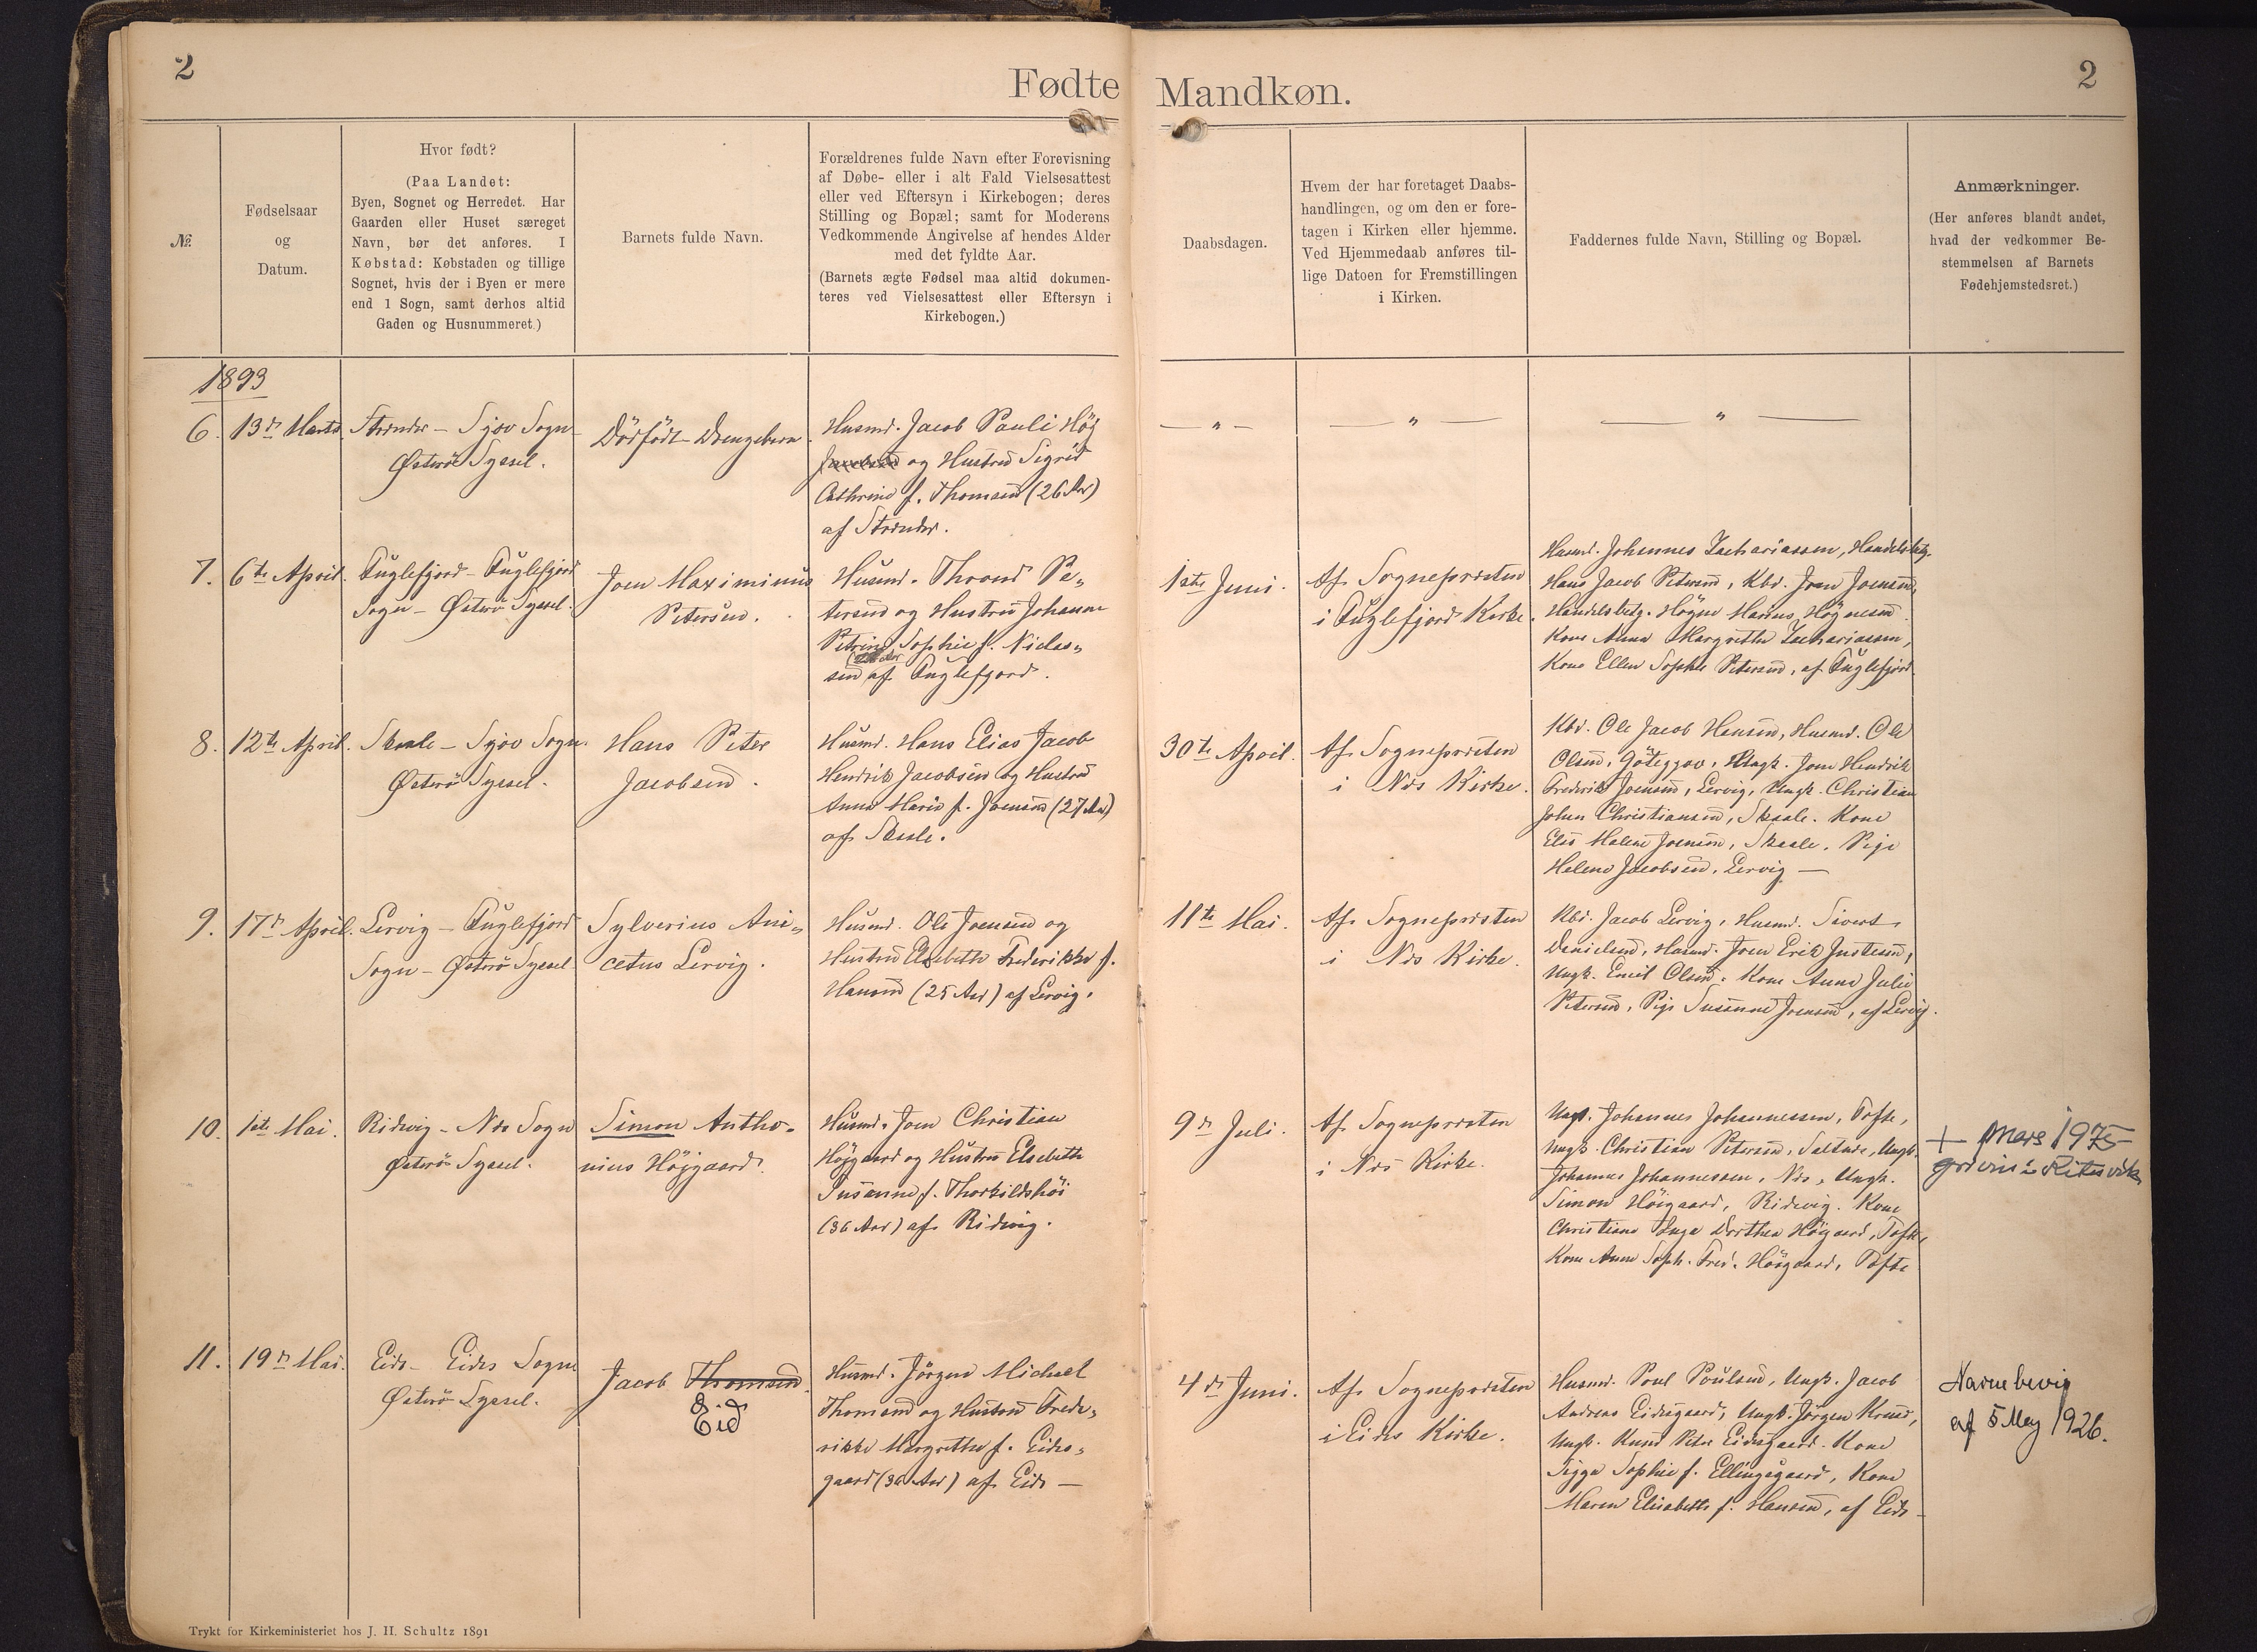 2
Fødte
Mandkøn.
2
№
Fødselsaar
og
Datum.
Hvor født?
(Paa Landet:
Byen, Sognet og Herredet. Har
Gaarden eller Huset særeget
Navn, bør det anføres. I
Købstad: Købstaden og tillige
Sognet, hvis der i Byen er mere
end 1 Sogn, samt derhos altid
Gaden og Husnummeret.)
Barnets fulde Navn.
Forældrenes fulde Navn efter Forevisning
af Døbe- eller i alt Fald Vielsesattest
eller ved Eftersyn i Kirkebogen; deres
Stilling og Bopæl; samt for Moderens
Vedkommende Angivelse af hendes Alder
med det fyldte Aar.
(Barnets ægte Fødsel maa altid dokumen-
teres ved Vielsesattest eller Eftersyn i
Kirkebogen.)
Daabsdagen.
Hvem der har foretaget Daabs-
handlingen, og om den er fore-
tagen i Kirken eller hjemme.
Ved Hjemmedaab anføres til-
lige Datoen for Fremstillingen
i Kirken.
Faddernes fulde Navn, Stilling og Bopæl.
Anmærkninger.
(Her anføres blandt andet,
hvad der vedkommer Be-
stemmelsen af Barnets
Fødehjemstedsret.)
1893
6.
13de Marts.
Strender – Sjov Sogn
Østerö Syssel.
Dödfödt Drengebarn.
Husmd. Jacob Pauli Höj
og Hustru Sigrid
Cathrine f. Thomsen (26 Aar)
af Strender.
— " —
— " —
— " —
7.
6te April.
Fuglefjord – Fuglefjord
Sogn – Østerö Syssel.
Joen Maximinus
Petersen.
Husmd. Thrond Pe-
tersen og Hustru Johanne
Petrine Sophie f. Niclas-
sen af Fuglefjord.
1ste Juni.
Af Sognepræsten
i Fuglefjord Kirke.
Husmd. Johannes Zachariassen, Handelsbetj.
Hans Jacob Petersen, Kbd. Joen Joensen,
Handelsbetj. Högne Marius Högnesen.
Kone Anna Margrethe Zachariassen,
Kone Ellen Sophie Petersen, af Fuglefjord.
8.
12te April.
Skaale – Sjov Sogn.
Østerö Syssel.
Hans Peter
Jacobsen.
Husmd. Hans Elias Jacob
Hendrik Jacobsen og Hustru
Anna Maria f. Joensen (27 Aar)
af Skaale.
30te April.
Af Sognepræsten
i Næs Kirke.
Kbd. Ole Jacob Hansen, Husmd. Ole
Olsen, Göteggov, Ungk. Joen Hendrik
Frederik Joensen, Lervig, Ungk. Christian
Johan Christiansen, Skaale. Kone
Elis Malene Joensen, Skaale. Pige
Helene Jacobsen, Lervig —
9.
17de April.
Lervig – Fuglefjord
Sogn – Østerö Syssel.
Sylverius Ani-
cetus Lervig.
Husmd. Ole Joensen og
Hustru Elsebeth Frederikke f.
Hansen (25 Aar) af Lervig.
11te Mai.
Af Sognepræsten
i Næs Kirke.
Kbd. Jacob Lervig, Husmd. Sivert
Danielsen, Husmd. Joen Erik Justesen,
Ungk. Emil Olsen. Kone Anna Julie
Petersen, Pige Susanne Joensen, af Lervig.
10.
1ste Mai.
Ridevig – Næs Sogn
Østerö Syssel.
Simon Antho-
nius Höjgaard.
Husmd. Joen Christian
Höjgaard og Hustru Elsebeth
Susanne f. Thorkildshöi
(36 Aar) af Ridevig.
9de Juli.
Af Sognepræsten
i Næs Kirke.
Ungk. Johannes Johannessen, Tofte,
Ungk. Christian Petersen, Saltnæs, Ungk.
Johannes Johannessen, Næs, Ungk.
Simon Höigaard, Ridevig. Kone
Christiane Inga Dorthea Höigaard, Tofte,
Kone Anna Soph. Fred. Höigaard, Tofte
+ mars 1975
grivin í Rituvík
11.
19de Mai.
Eide – Eides Sogn
Østerö Syssel.
Jacob Thomsen.
Eid
Husmd. Jörgen Michael
Thomsen og Hustru Frede-
rikke Margrethe f. Eides-
gaard (36 Aar) af Eide —
4de Juni.
Af Sognepræsten
i Eides Kirke.
Husmd. Poul Poulsen, Ungk. Jacob
Andreas Eidesgaard, Ungk. Jörgen Kruse,
Ungk. Knud Peter Eidesgaard. Kone
Sigga Sophie f. Ellingsgaard, Kone
Maren Elisabeth f. Hansen, af Eide
Navnebevis
af 5 May 1926.
Trykt for Kirkeministeriet hos J. H. Schultz 1891